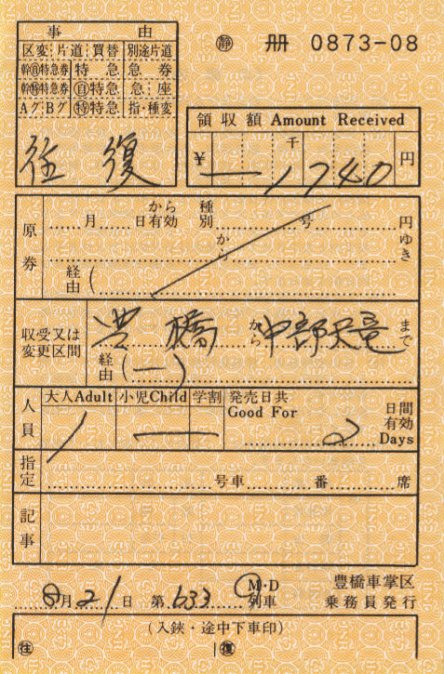 事 由
㊮ 冊 0873-08
区変 片道 質替 別途片道
幹自特急券 特 急 急 券
幹特特急券 自特急 急 座
Aグ Bグ 特特急 指・種変
往 復
領 収 額 Amount Received
千
¥ 1740 円
原券
から 種
月 日有効 別 号 円
から ゆき
経由 (
収受又は
変更区間
豊橋 から 中部天竜 まで
経由 (一)
人員
大人Adult 小児Child 学割 発売日共 日間
Good For 有効
1 — 2 Days
指定
号車 番 席
記事
8月21日 第633 M・D 列車
豊橋車掌区
乗務員発行
(入鋏・途中下車印)
往 復